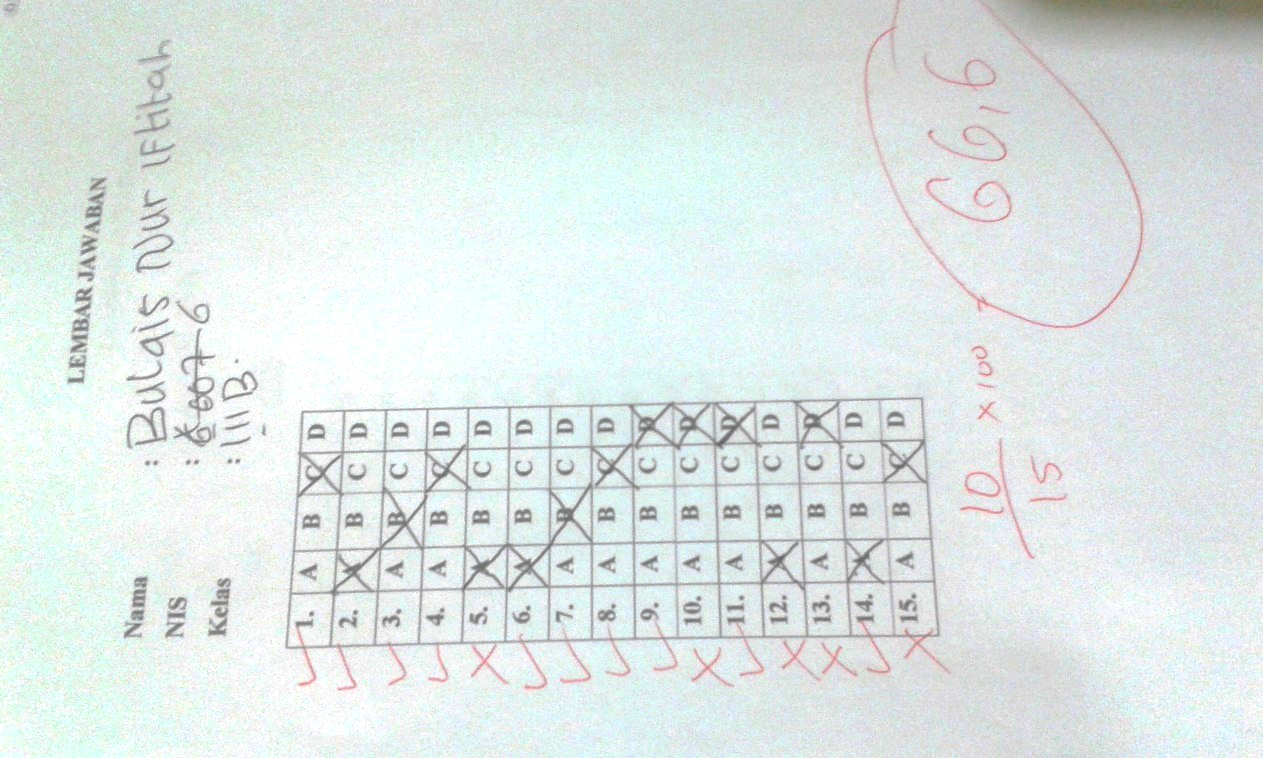 LEMBAR JAWABAN
Nama : Bulqis Nur Iftitah
NIS : 6
Kelas : III B.
1. A B C D
2. A B C D
3. A B C D
4. A B C D
5. A B C D
6. A B C D
7. A B C D
8. A B C D
9. A B C D
10. A B C D
11. A B C D
12. A B C D
13. A B C D
14. A B C D
15. A B C D
10/15 x 100 = 66,6